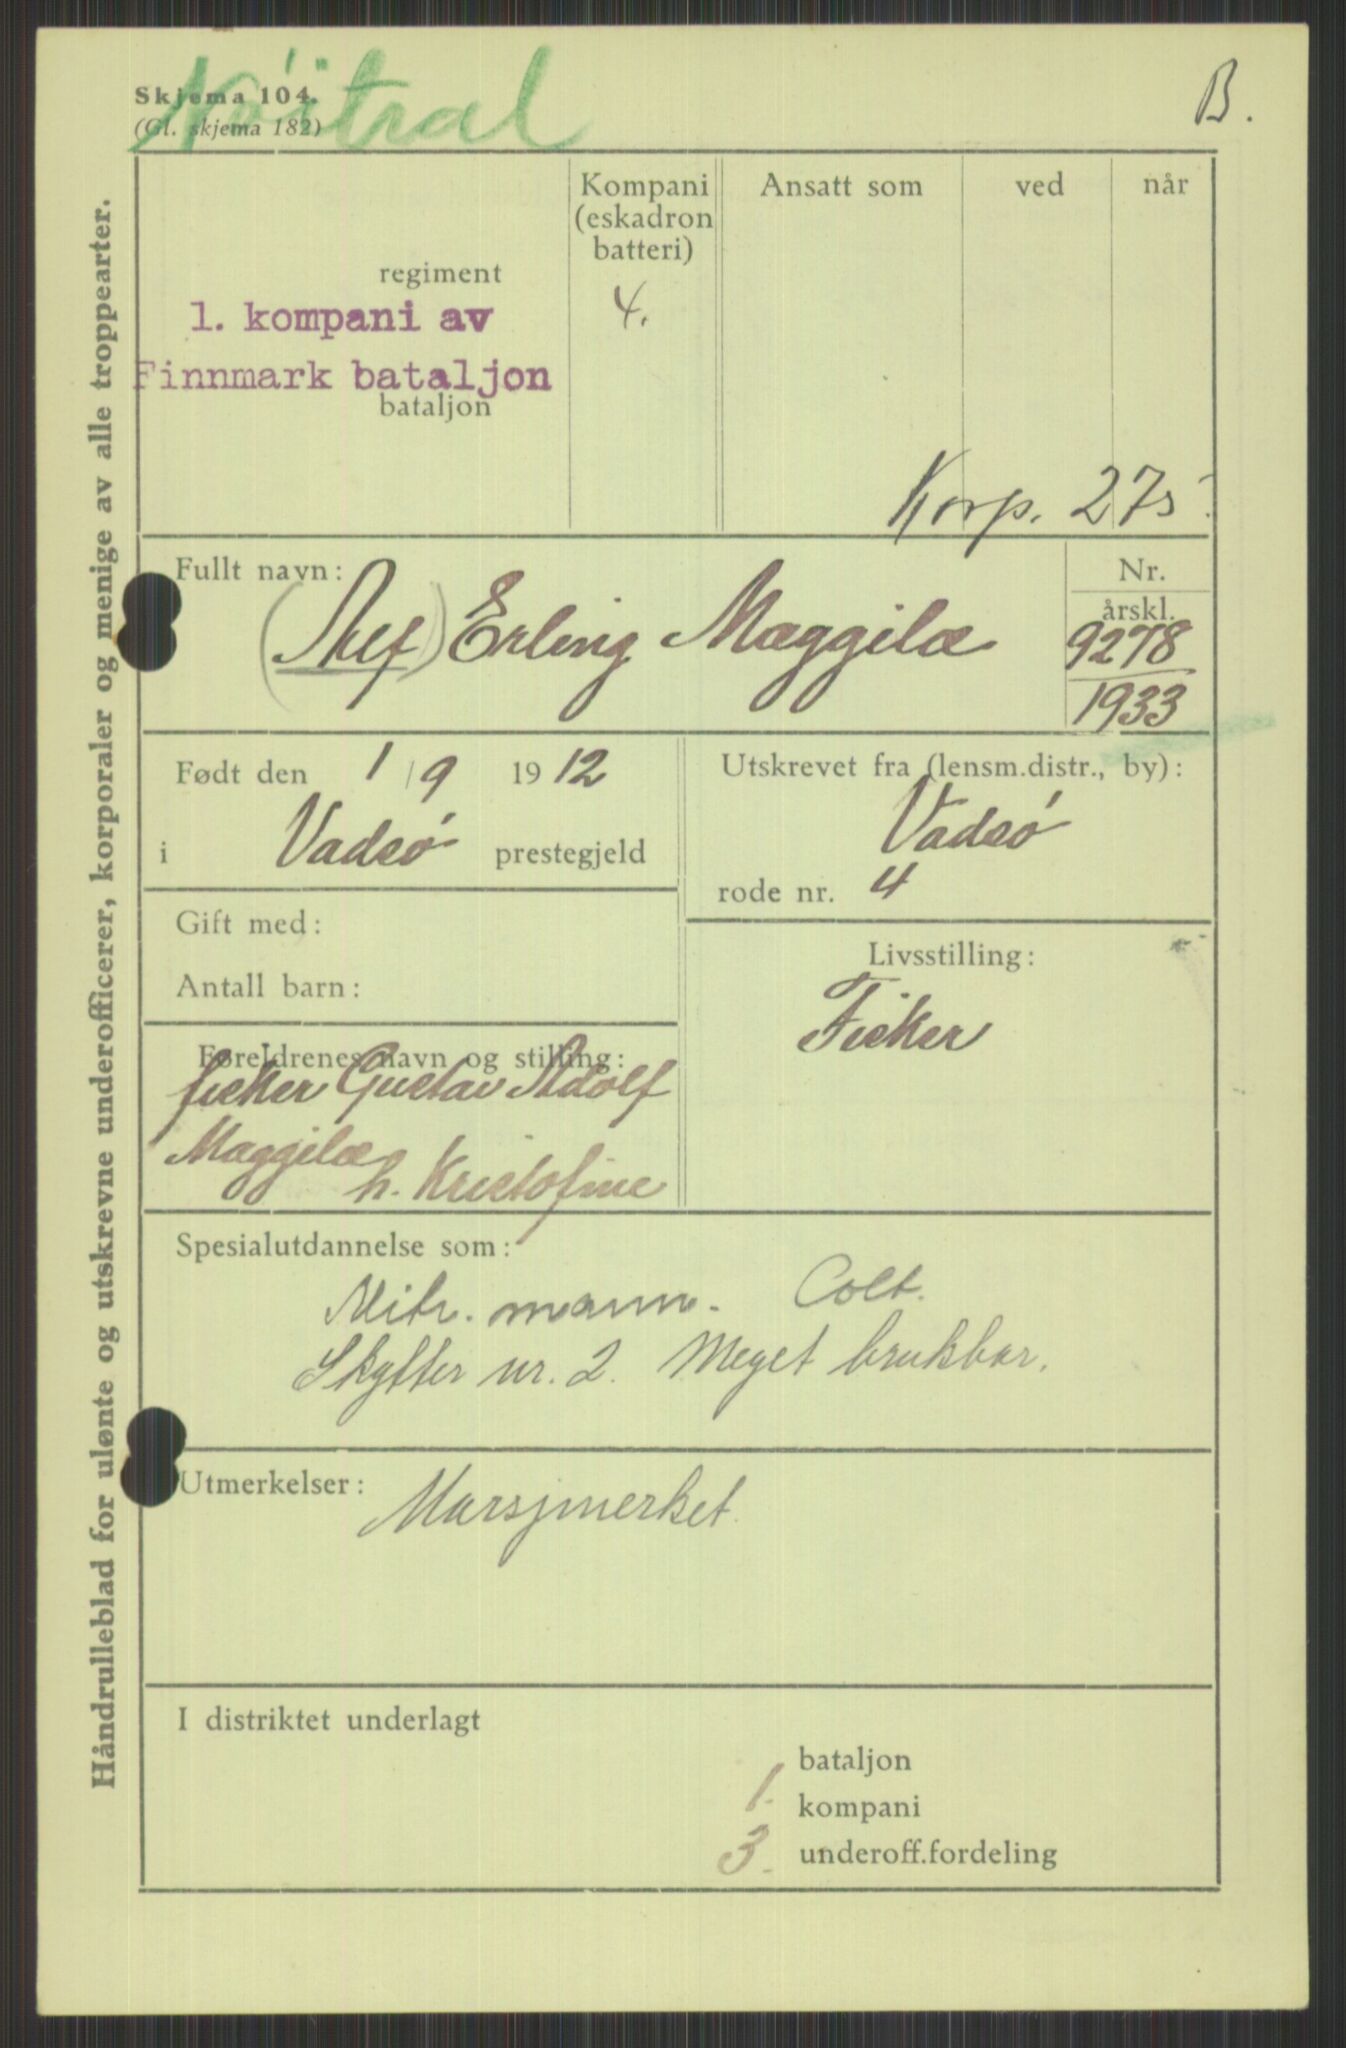 Nöitral
Skjema 104.
(Gl. skjema 182)
B.
Håndrulleblad for ulønte og utskrevne underofficerer, korporaler og menige av alle troppearter.
Kompani (eskadron batteri)
Ansatt som
ved
når
regiment
4.
1. kompani av
Finnmark bataljon
bataljon
Korp. 275
Fullt navn:
Nr.
årskl.
(Alf) Erling Mæggilæ
9278
1933
Født den 1/9 1912
i Vadsø prestegjeld
Utskrevet fra (lensm.distr., by):
Vadsø
rode nr. 4
Gift med:
Antall barn:
Livsstilling:
Fisker
Foreldrenes navn og stilling:
fisker Gustav Adolf
Mæggilæ
h. Kristofine
Spesialutdannelse som:
Mitr. mann. Colt.
Skytter nr. 2. Meget brukbar.
Utmerkelser:
Marsjmerket.
I distriktet underlagt
bataljon
1. kompani
3. underoff.fordeling